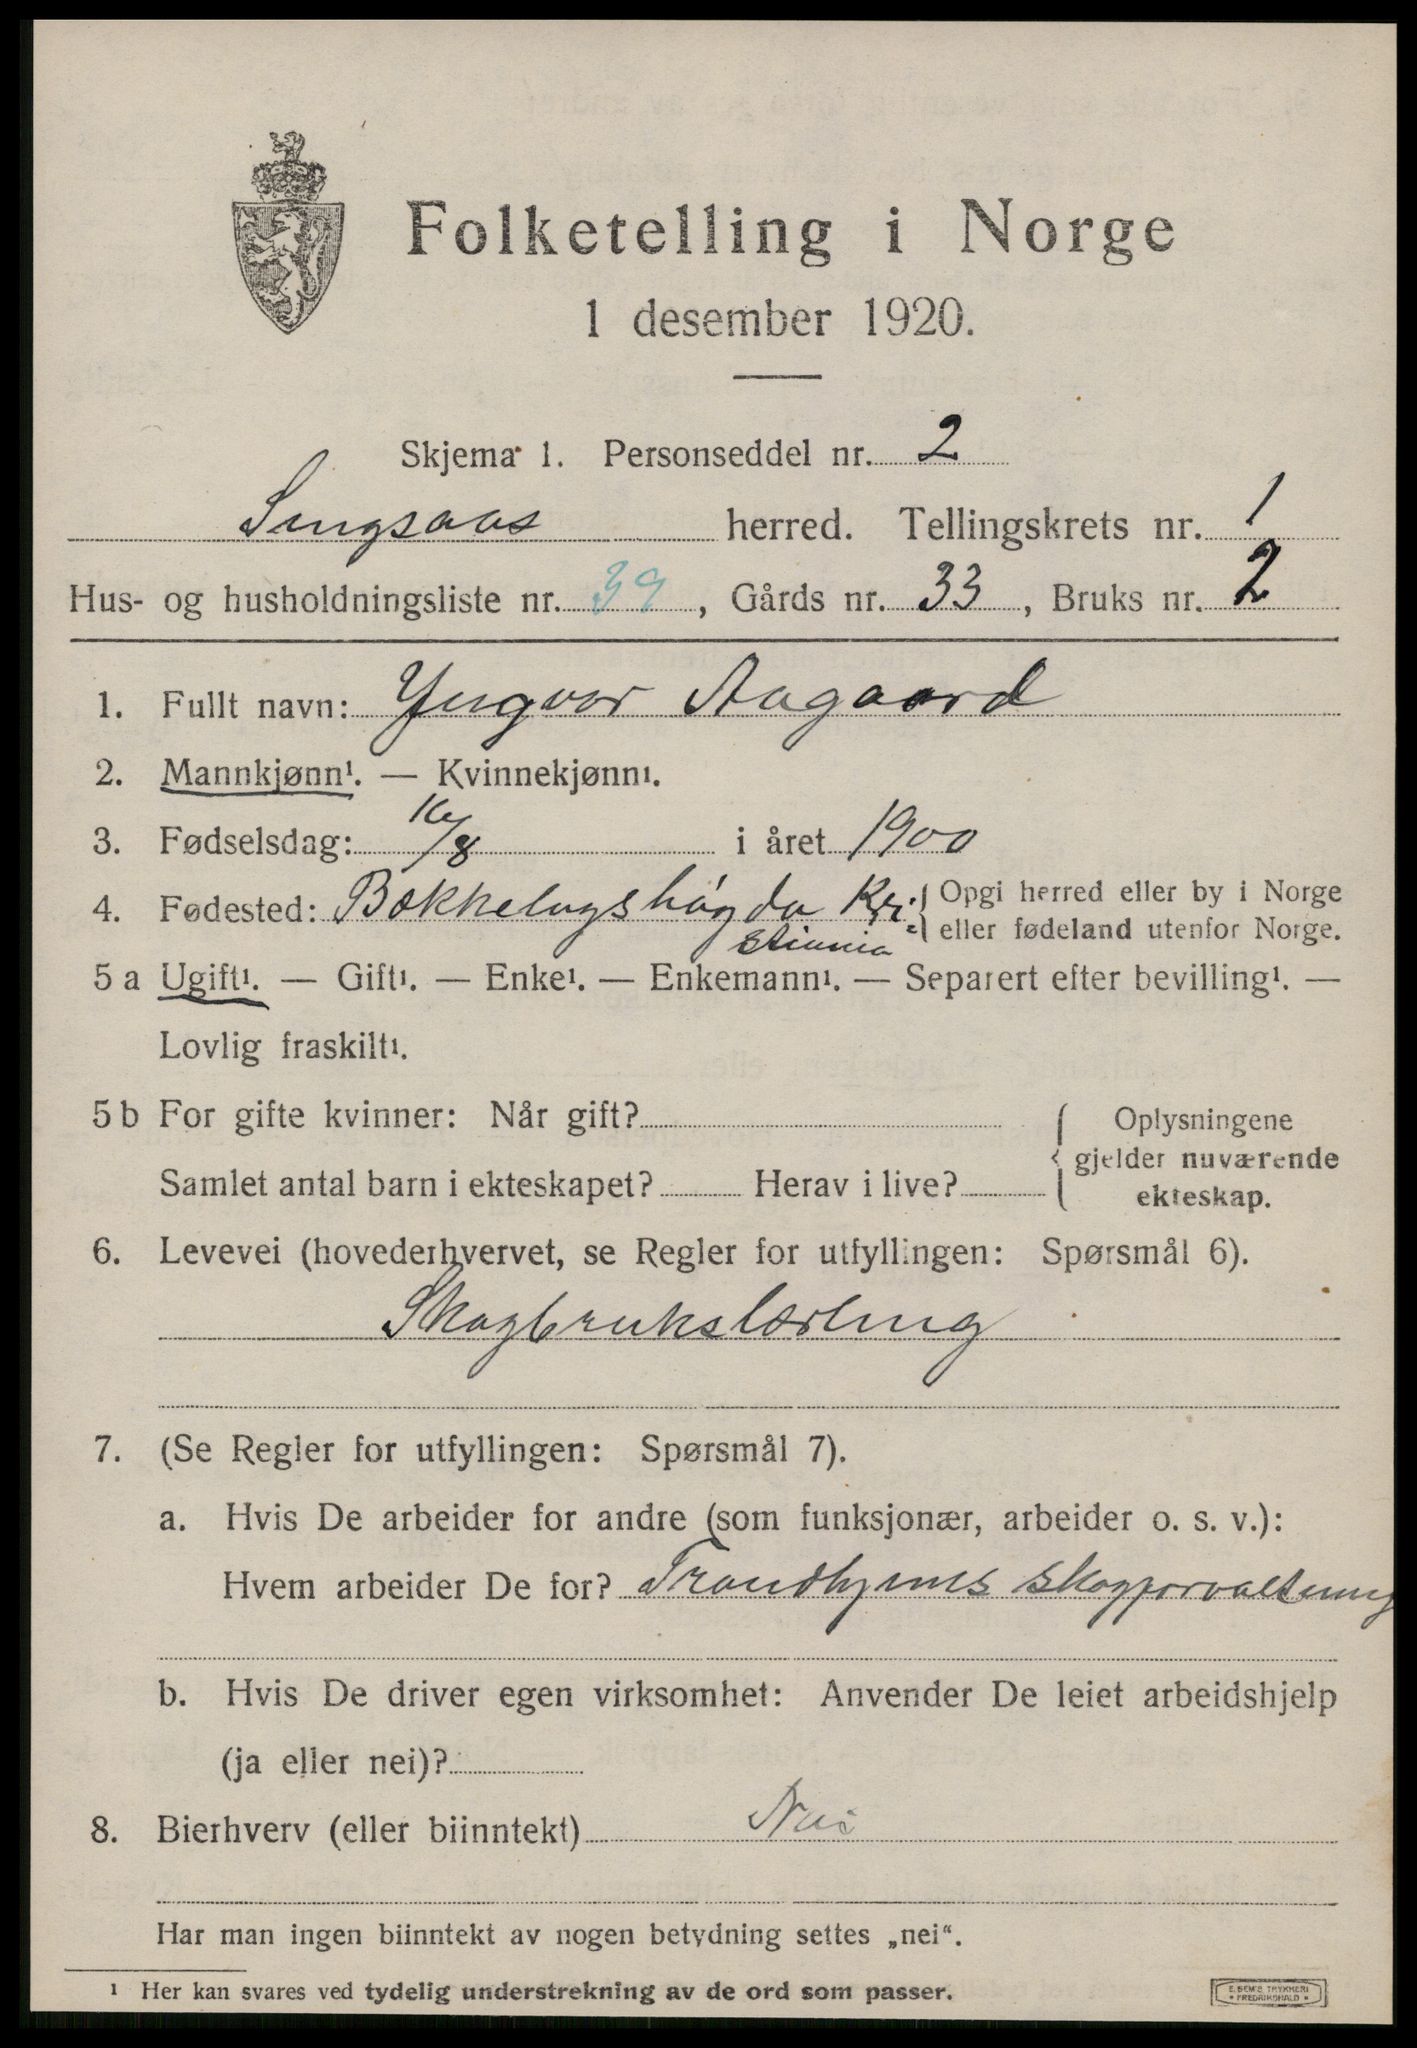 Folketelling i Norge
1 desember 1920.
Skjema 1. Personseddel nr. 2
Singsaas herred. Tellingskrets nr. 1
Hus- og husholdningsliste nr. 39, Gårds nr. 33, Bruks nr. 2
1. Fullt navn: Yngvar Aagaard
2. Mannkjønn¹. — Kvinnekjønn¹.
3. Fødselsdag: 16/8 i året 1900
4. Fødested: Bækkelagshøgda Kri- { Opgi herred eller by i Norge
stiania eller fødeland utenfor Norge.
5 a Ugift¹. — Gift¹. — Enke¹. — Enkemann¹. — Separert efter bevilling¹. —
Lovlig fraskilt¹.
5 b For gifte kvinner: Når gift? { Oplysningene
gjelder nuværende
Samlet antal barn i ekteskapet? Herav i live? ekteskap.
6. Levevei (hovederhvervet, se Regler for utfyllingen: Spørsmål 6).
Skogbrukslærling
7. (Se Regler for utfyllingen: Spørsmål 7).
a. Hvis De arbeider for andre (som funksjonær, arbeider o. s. v.):
Hvem arbeider De for? Trondhjems skogforvaltning
b. Hvis De driver egen virksomhet: Anvender De leiet arbeidshjelp
(ja eller nei)?
8. Bierhverv (eller biinntekt) Nei
Har man ingen biinntekt av nogen betydning settes „nei“.
¹ Her kan svares ved tydelig understrekning av de ord som passer.
E. SEM'S TRYKKERI
FREDRIKSHALD